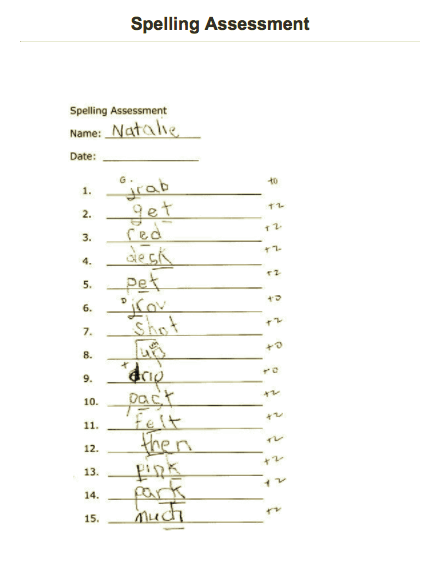 Spelling Assessment
Spelling Assessment
Name: Natalie
Date:
1. jrab +0
2. get +2
3. red +2
4. desk +2
5. pet +2
6. jrov +0
7. shot +2
8. +0
9. drip +0
10. pact +2
11. felt +2
12. then +2
13. pink +2
14. park +2
15. much +2